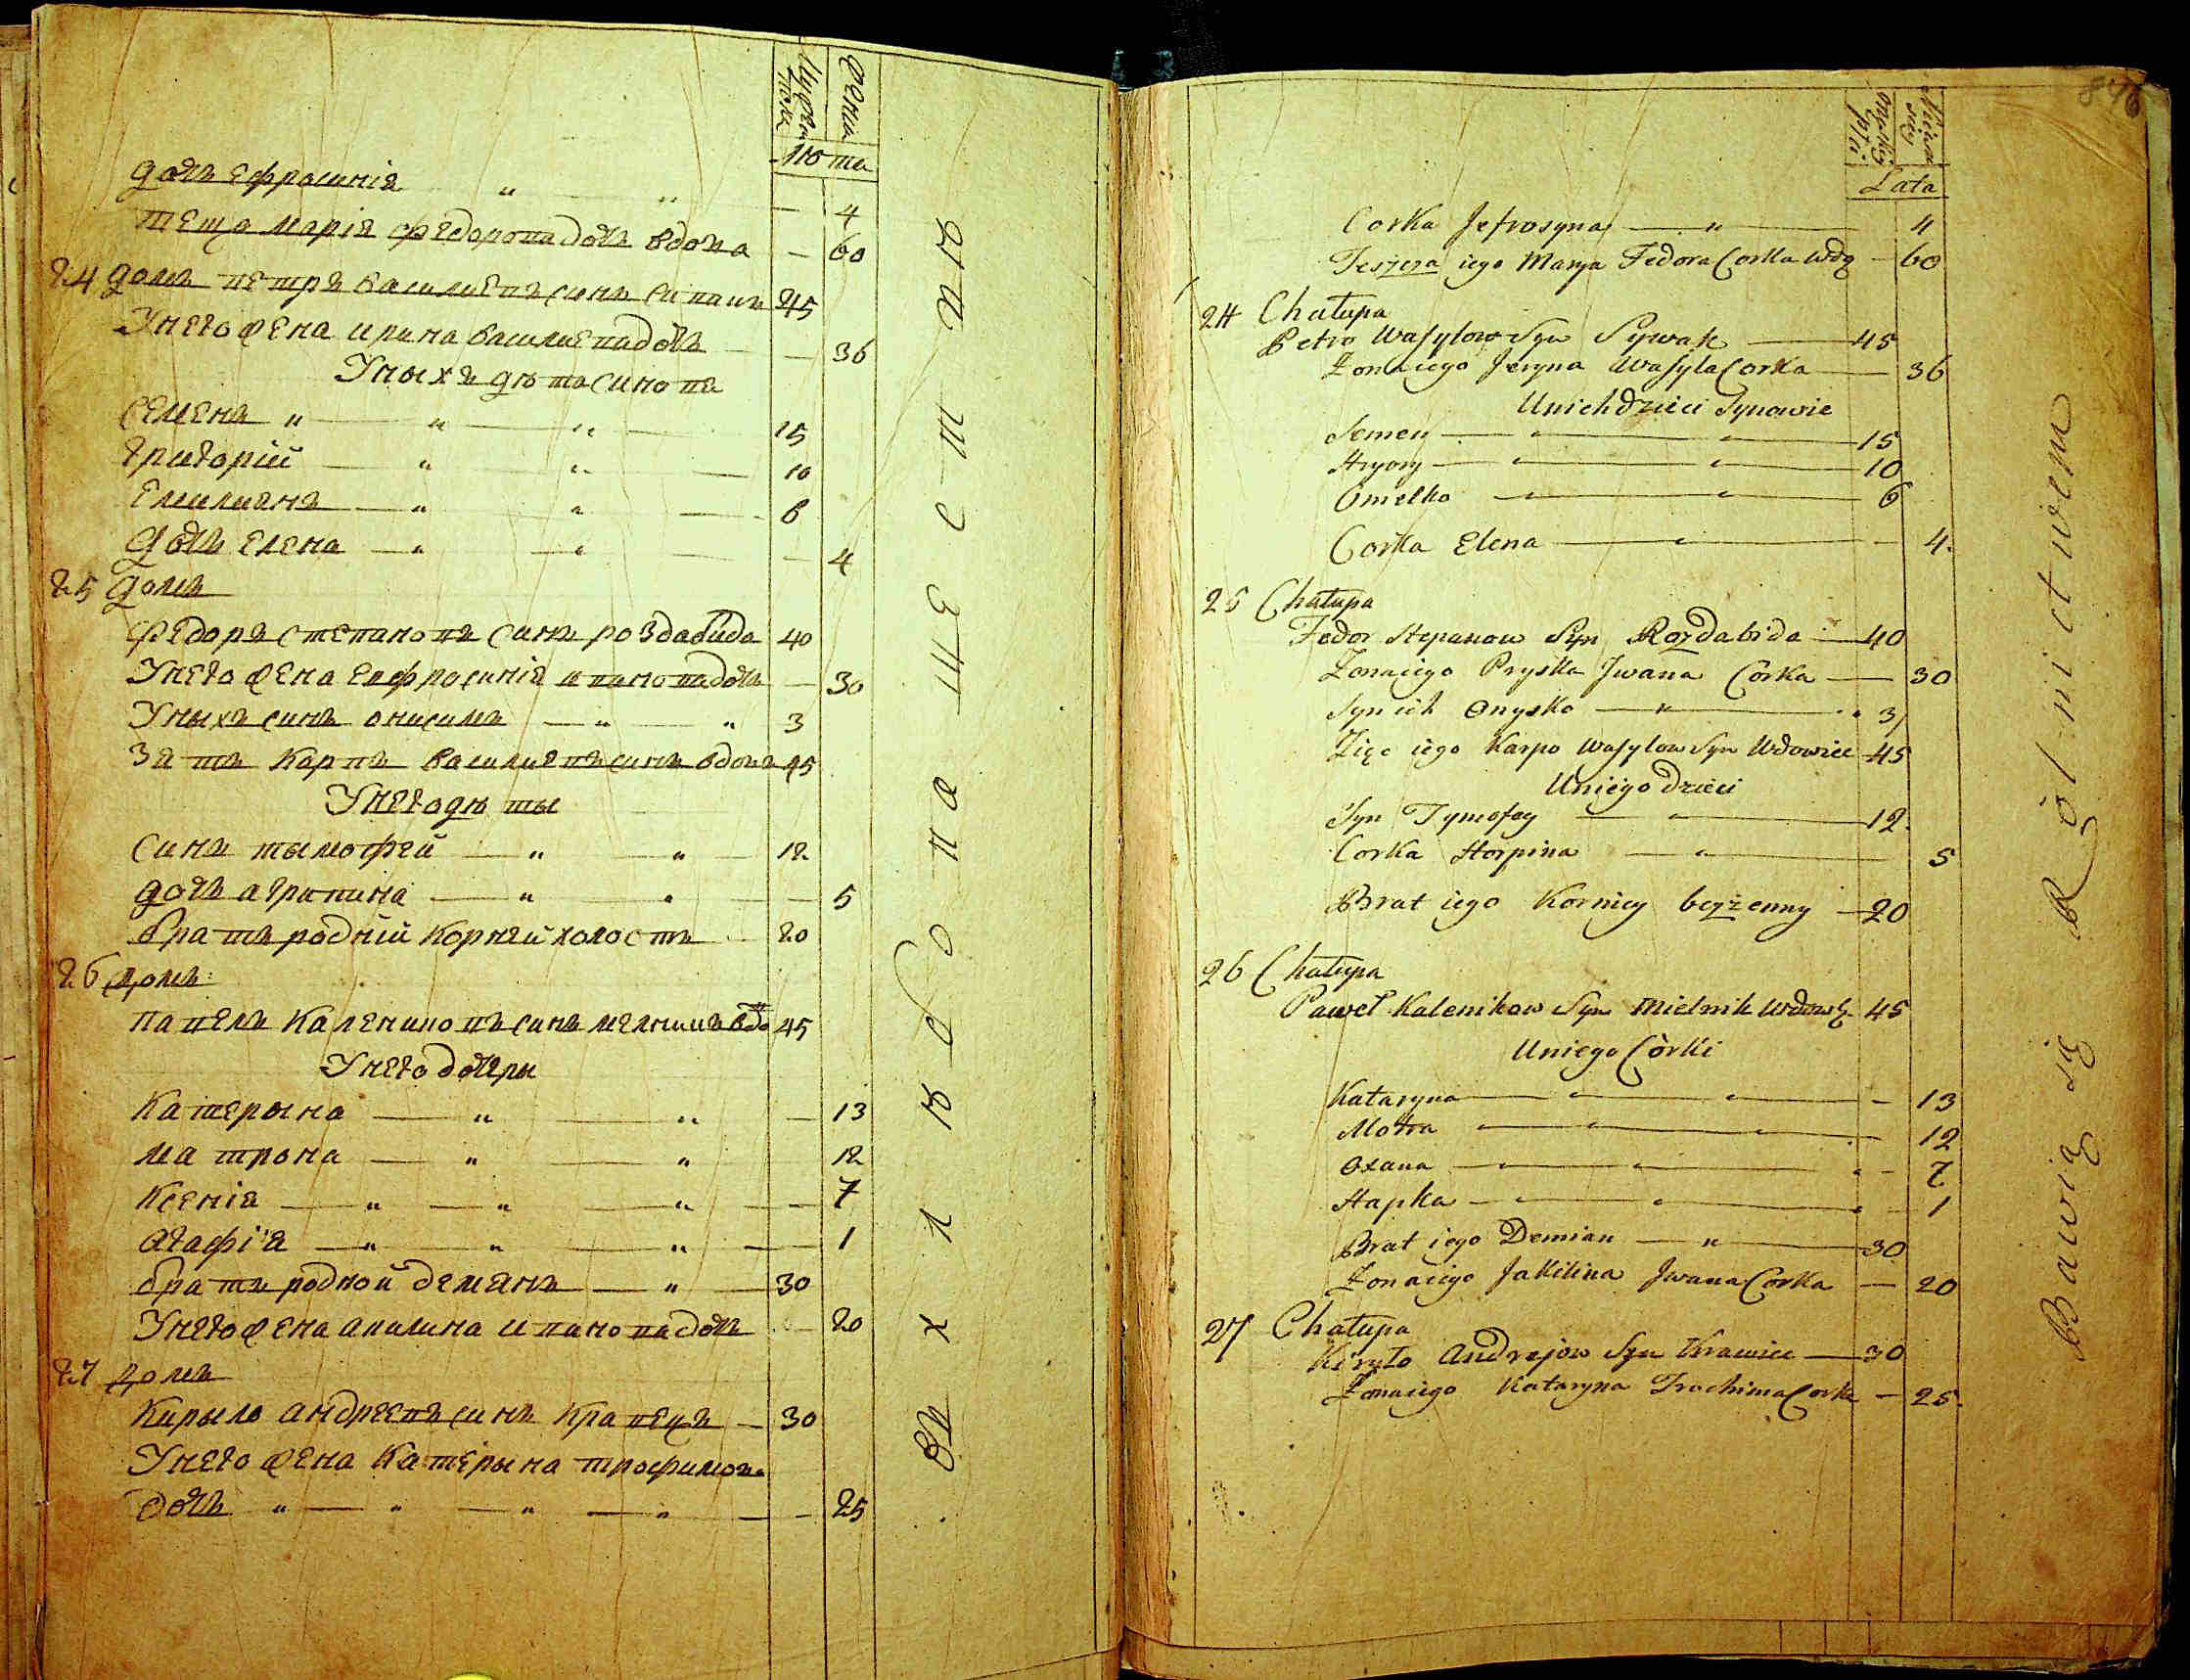 Мужеска пола
Женска
Лѣта
дочъ Ефросинія " " — 4
теща Марія Федорова дочъ вдова — 60
24 домъ Петръ Василиевъ синъ Сивакъ 45
У него жена Ирина Василиева дочъ — 36
У ныхъ дѣти синовя
Семенъ " " " 15
Григорій — " " — 10
Емилиянъ — " " — 6
Дочъ Елена — " — " — 4
25 домъ
Федоръ Степановъ синъ Роздабида 40
У него жена Евфросинія Иванова дочъ — 30
У ныхъ синъ Онисимъ — " — " 3
Зять Карпъ Василиевъ синъ вдовъ 45
У него дѣты
Синъ Тымофей — " — " — 12
дочъ Агрипина — " " — 5
братъ родній Корней холостъ — 20
26 домъ
Павелъ Калениковъ синъ Мелникъ вдо 45
У него дочеры
Катерына — " — " — 13
Матрона — " — " 12
Ксенія — " — " — " — 7
Агафія — " " — " — 1
братъ родной Демянъ — " — 30
У него жена Акилина Иванова дочъ — 20
27 домъ
Кирыло Андреевъ синъ Кравецъ — 30
У него жена Катерына Трофимова
дочъ " — " — " — " — 25
Lata
Corka Jefrosyna — " — 4
Teszcza iego Marya Fedora Corka Wdo — 60
24 Chałupa
Petro Wasylow Syn Sywak — 45
Zona iego Jeryna Wasyla Corka — 36
U nich dzieci Synowie
Semen — " — " — 15
Hryory — " — " — 10
Omelko — " — " — 6
Corka Elena — " — 4.
25 Chałupa
Fedor Stepanow Syn Rozdabida — 40
Zona iego Pryska Jwana Corka — 30
Syn ich Onysko — " — 3
Zięc iego Karpo Wasylow Syn Wdowiec 45
U niego dzieci
Syn Tymofey — " — 12.
Corka Horpina — " — 5
Brat iego Korniey bezżenny — 20
26 Chałupa
Paweł Kalenikow Syn Mielnik Wdow. 45
U niego Còrki
Kataryna — " — " — 13
Motra — " — " — 12
Oxana — " — " — 7
Hapka — " — " — 1
Brat iego Demian — " — 30
Zona iego Jakilina Jwana Corka — 20
27 Chałupa
Kiryło Andrejow Syn Krawiec — 30
Zona iego Kataryna Trochima Corka — 25.
Bawią się Rolnictwem